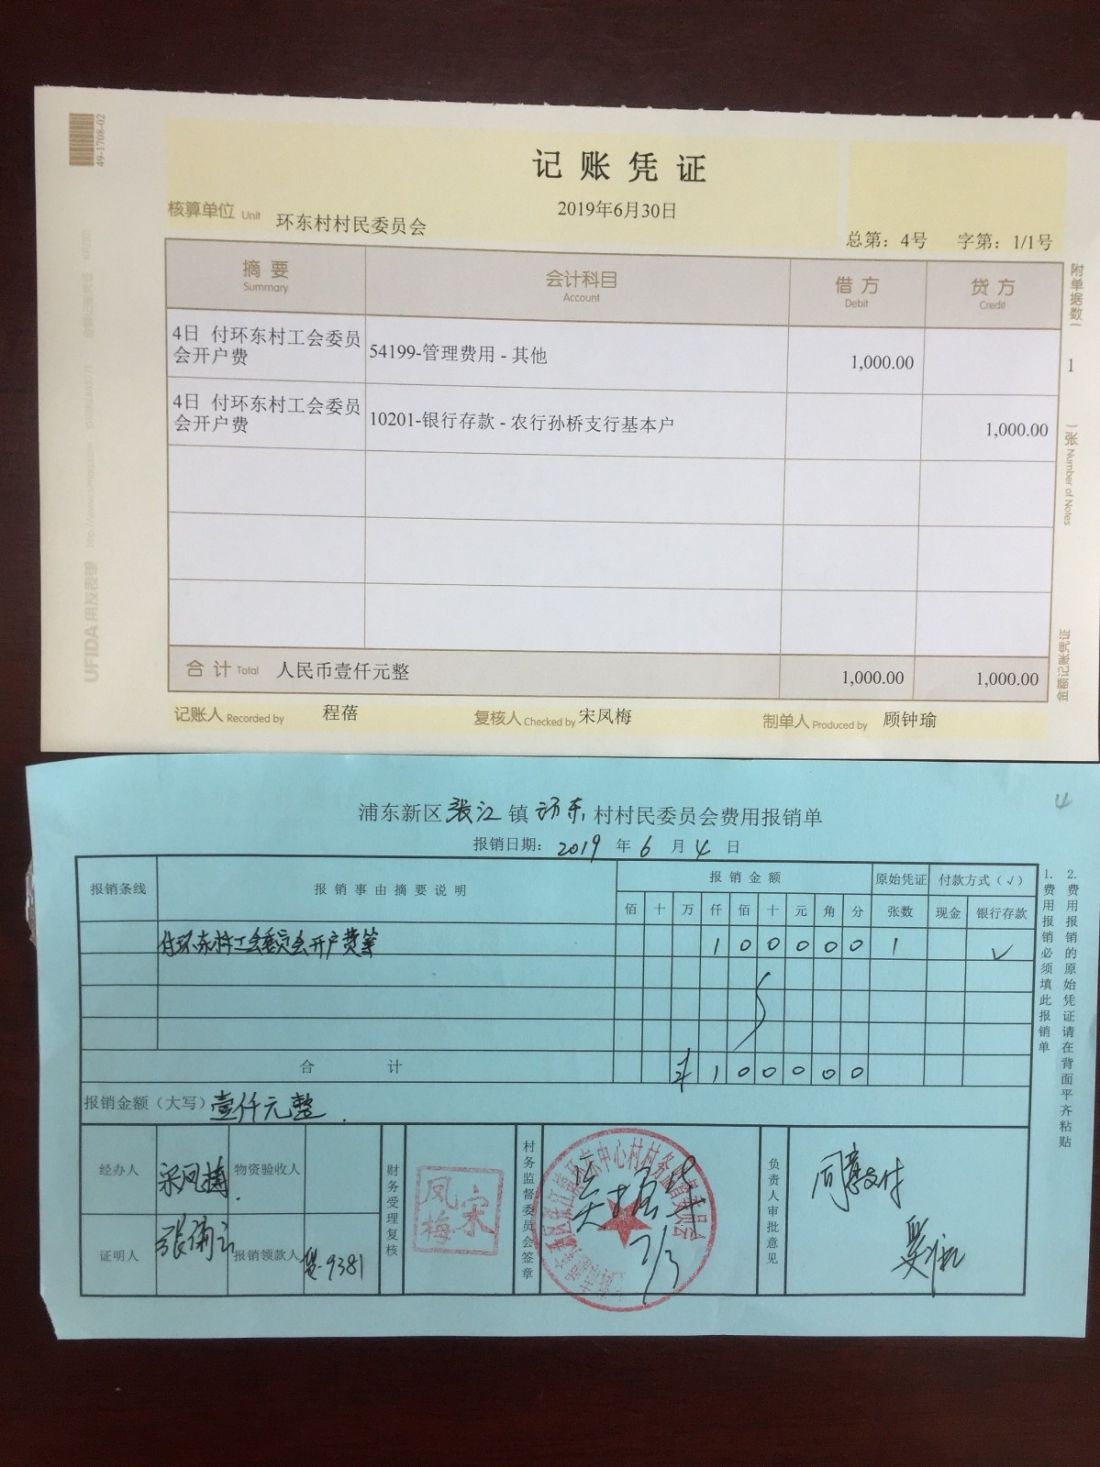 49-1708-02
记账凭证
2019年6月30日
核算单位 Unit 环东村村民委员会
总第：4号 字第：1/1号
摘要 会计科目 借方 贷方
Summary Account Debit Credit
4日 付环东村工会委员会开户费 54199-管理费用 - 其他 1,000.00
4日 付环东村工会委员会开户费 10201-银行存款 - 农行孙桥支行基本户 1,000.00
合计 Total 人民币壹仟元整 1,000.00 1,000.00
记账人 Recorded by 程蓓 复核人 Checked by 宋凤梅 制单人 Produced by 顾钟瑜
附单据数（ 1 ）张 Number of Notes
金额记账凭证
UFIDA 用友表单
4
浦东新区张江镇环东村村民委员会费用报销单
报销日期：2019年6月4日
报销条线 报销事由摘要说明 报销金额 原始凭证 付款方式（√）
佰 十 万 仟 佰 十 元 角 分 张数 现金 银行存款
付环东村工会委员会开户费等 1 0 0 0 0 0 1 √
合计 ¥ 1 0 0 0 0 0
报销金额（大写）壹仟元整
经办人 宋凤梅 物资验收人
证明人 报销领款人 9381
财务受理复核
宋凤梅
村务监督委员会签章
7/3
负责人审批意见
同意支付
1.费用报销必须填此报销单
2.费用报销的原始凭证请在背面平齐粘贴